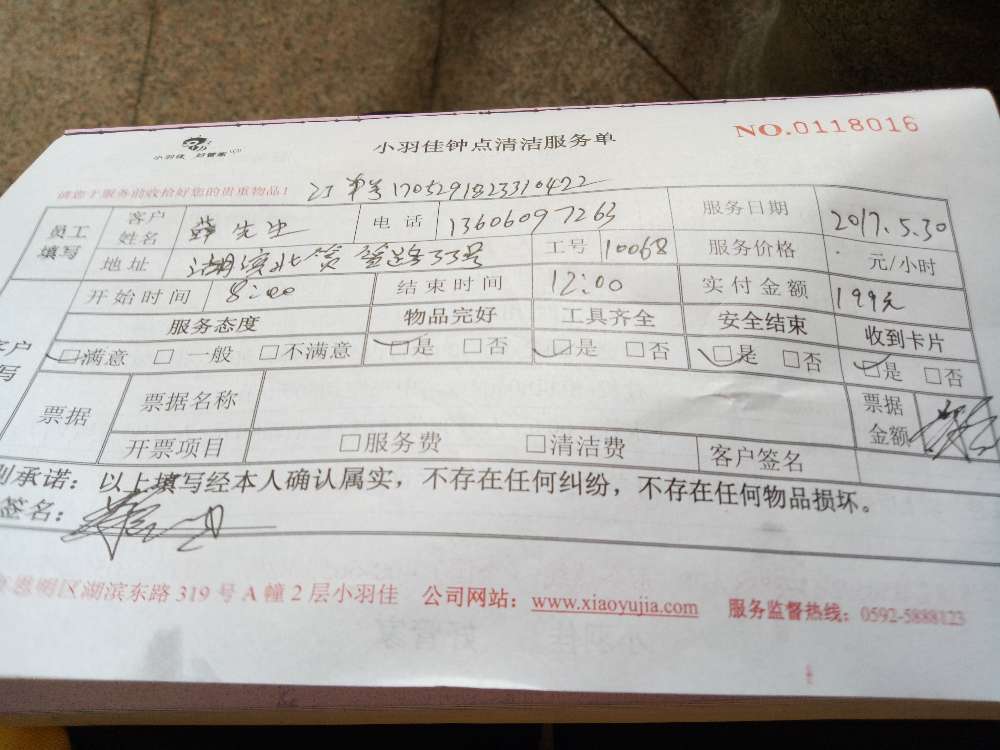 小羽佳 好管家
小羽佳钟点清洁服务单
NO.0118016
请您于服务前收拾好您的贵重物品!
1705291823310422
员工填写 客户姓名 薛先生 电话 13606097263 服务日期 2017.5.30
地址 湖滨北篔筜路33号 工号 10068 服务价格 元/小时
开始时间 8:00 结束时间 12:00 实付金额 199元
服务态度 物品完好 工具齐全 安全结束 收到卡片
□满意 □一般 □不满意 □是 □否 □是 □否 □是 □否 □是 □否
票据 票据名称 票据金额
开票项目 □服务费 □清洁费 客户签名
承诺:以上填写经本人确认属实,不存在任何纠纷,不存在任何物品损坏。
签名:
思明区湖滨东路 319 号 A 幢 2 层小羽佳 公司网站:www.xiaoyujia.com 服务监督热线:0592-5888123